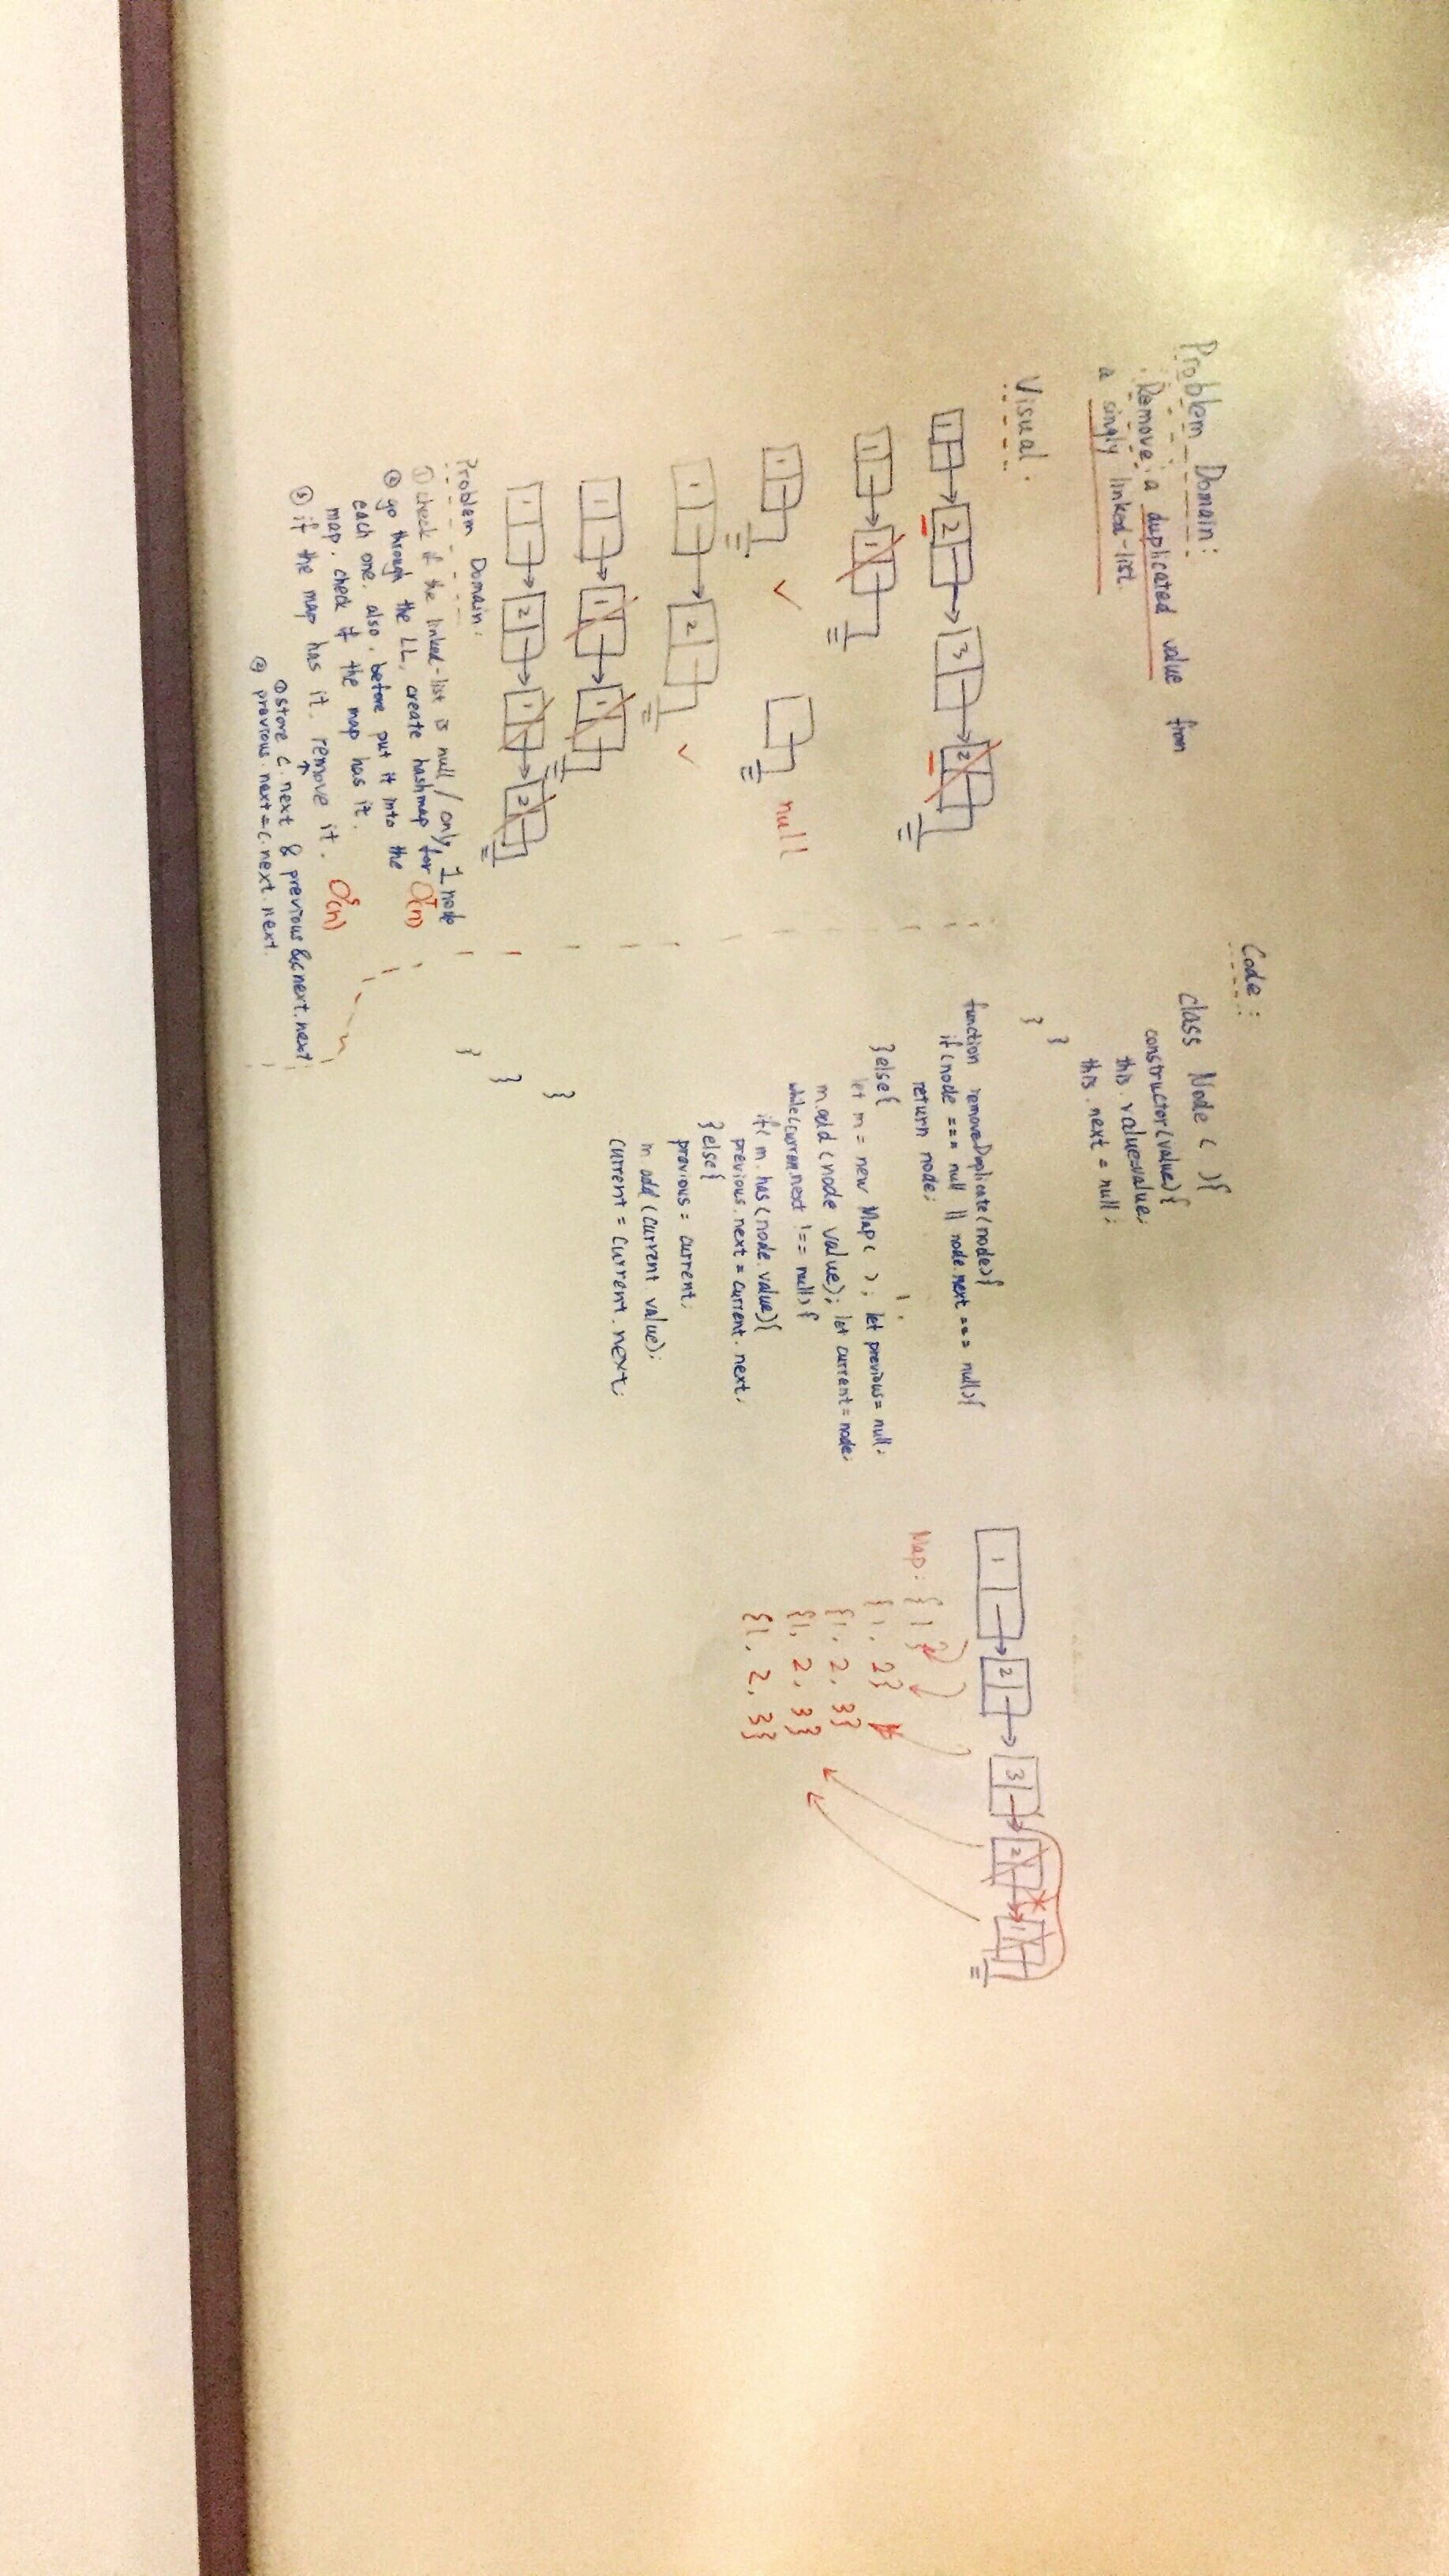 Problem Domain:
Remove a duplicated value from
a singly linked-list.
Visual.
1 2 3 2
1 1
1 null
1 2
1 1 1
1 2 1 2
Problem Domain:
① check if the linked-list is null / only 1 node
② go through the LL, create hashmap for O(n)
each one, also, before put it into the
map. check if the map has it.
③ if the map has it, remove it. O(n)
① store c.next & previous & c.next.next
② previous.next = c.next.next.
Code:
class Node ( ){
constructor(value){
this.value=value;
this.next = null;
}
}
function removeDuplicate(node){
if(node === null || node.next === null){
return node;
}else{
let m = new Map( ); let previous = null;
m.add(node value); let current = node;
while(curren.next !== null){
if( m.has(node.value){
previous.next = current.next;
}else{
previous = current;
m.add(current value);
current = current.next;
}
}
}
1 2 3 2 1
Map: { 1 }
{1, 2}
{1, 2, 3}
{1, 2, 3}
{1, 2, 3}